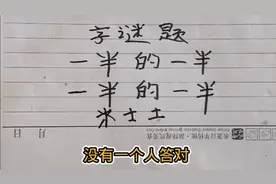 字谜题
一半的一半
一半的一半
米士士
没有一个人答对
日
月